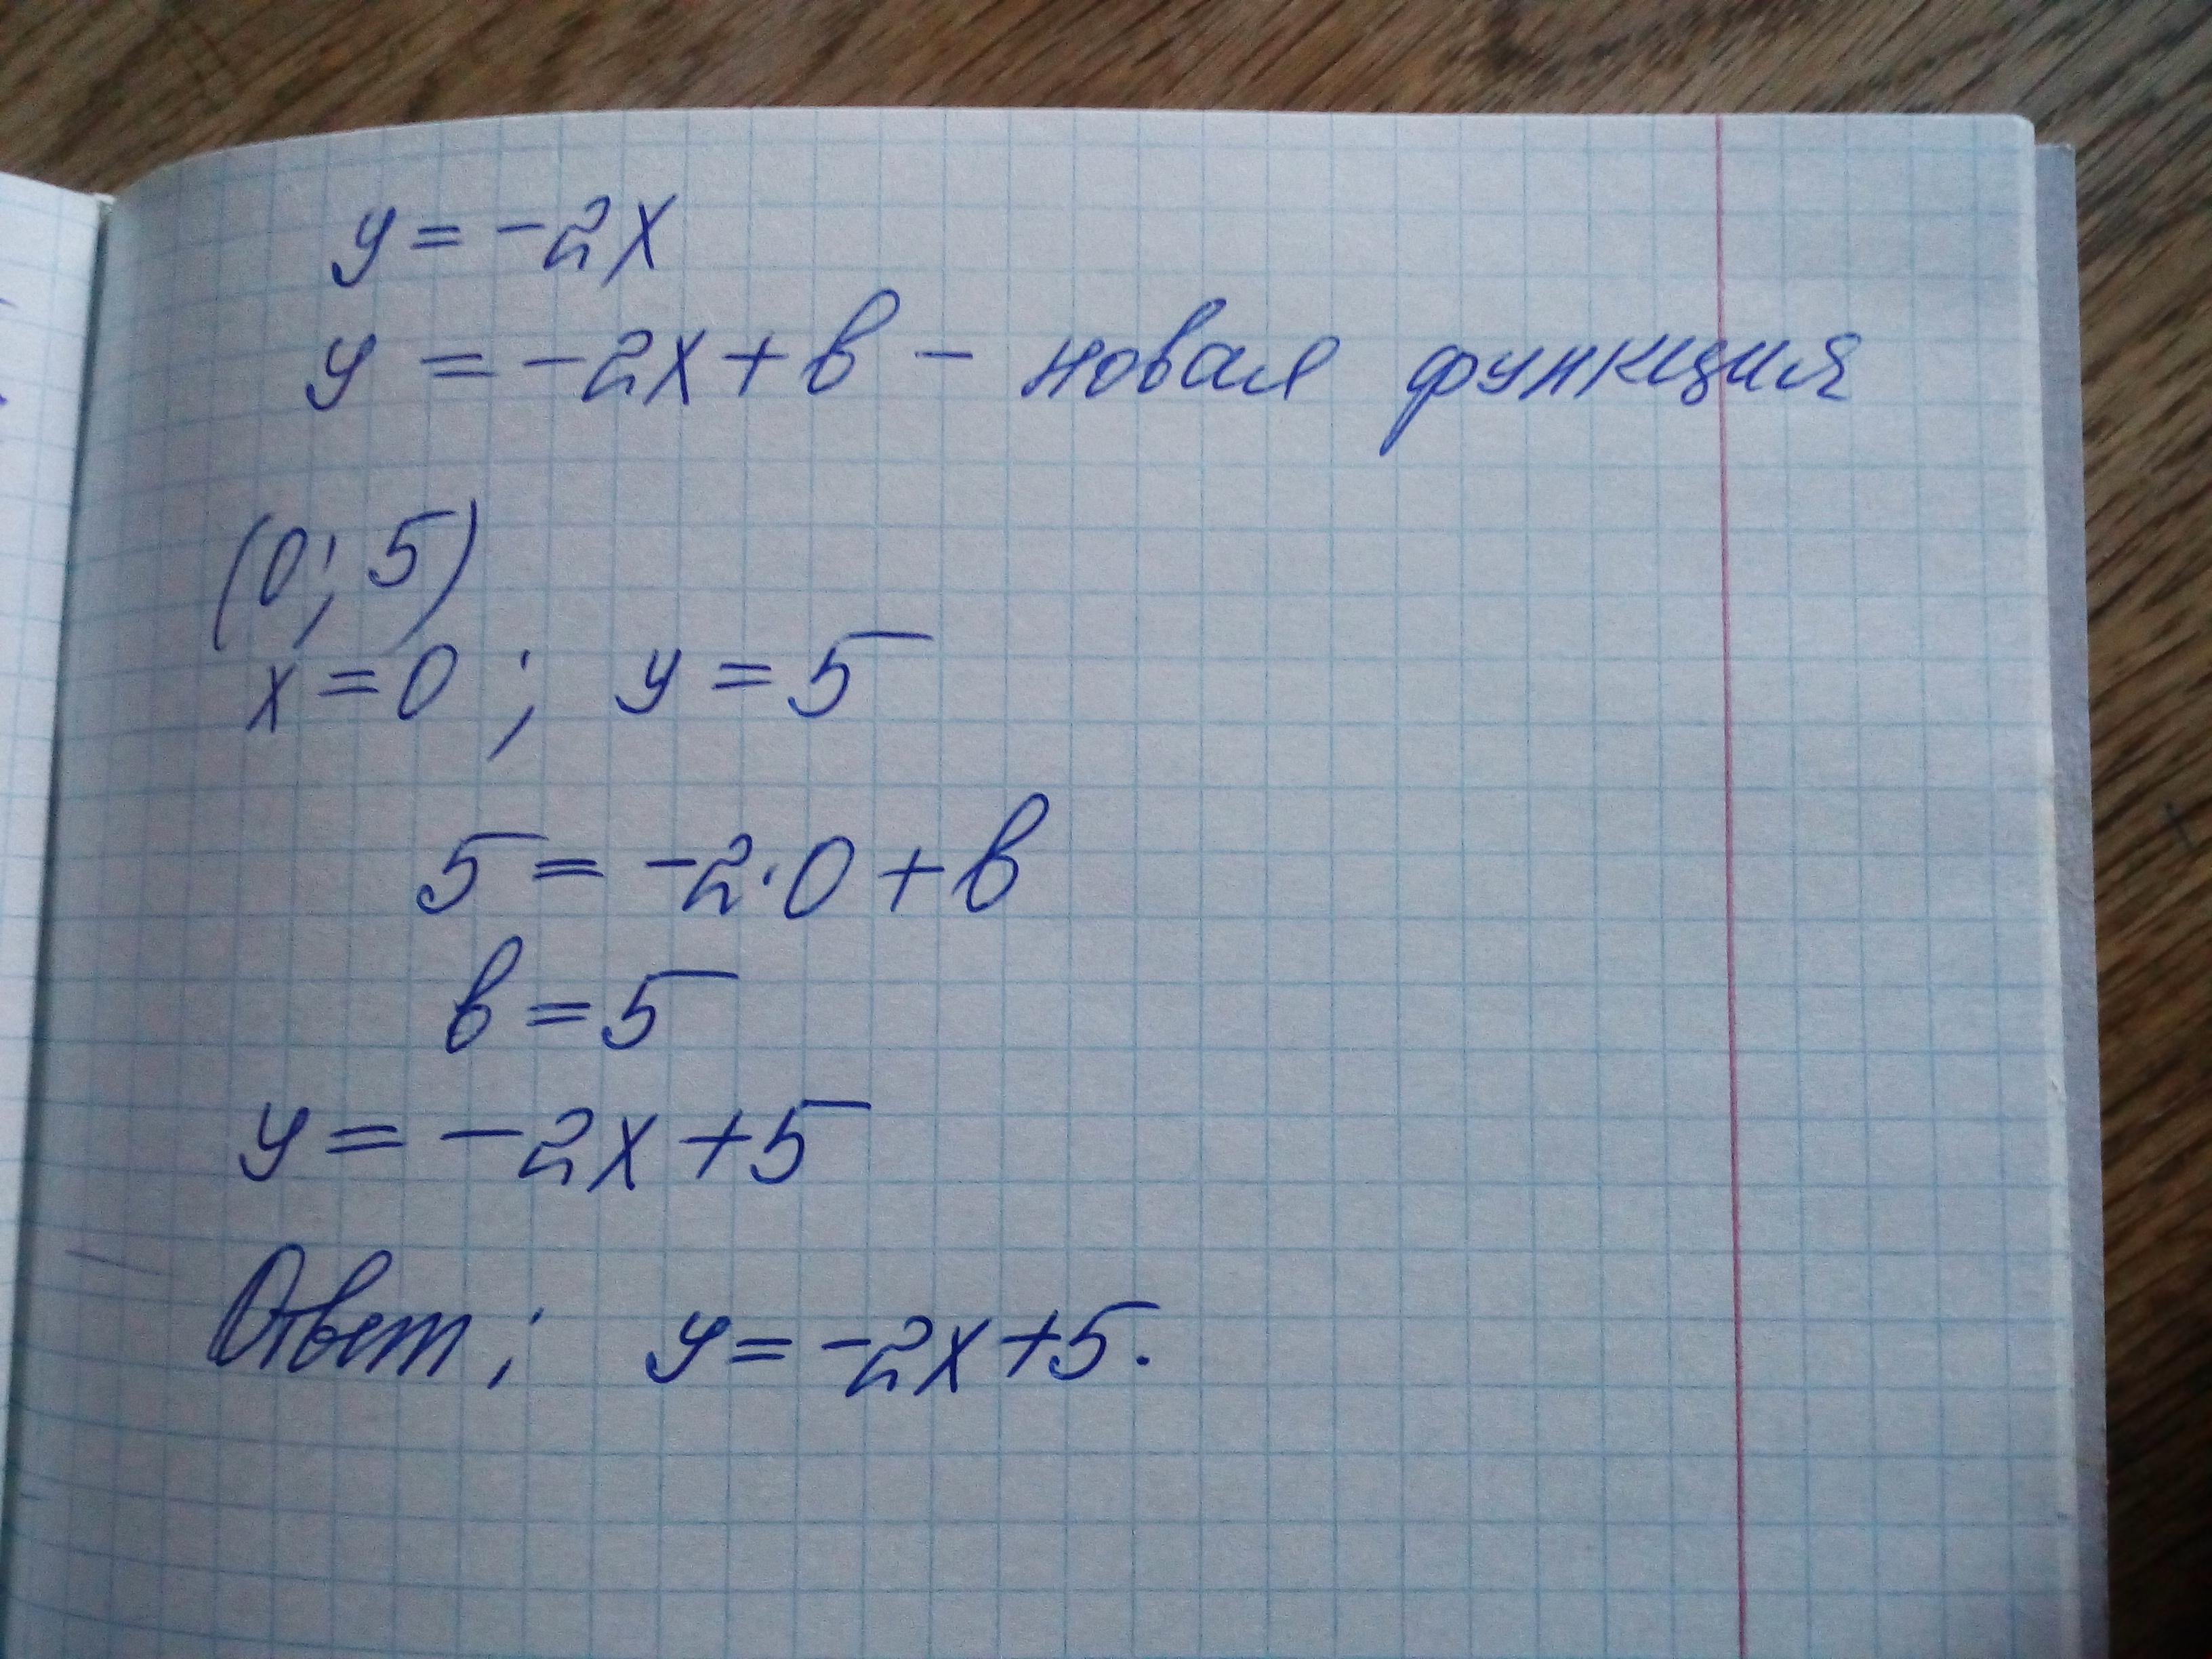 y = -2x
y = -2x + в - новая функция
(0; 5)
x = 0 ; y = 5
5 = -2·0 + в
в = 5
y = -2x + 5
Ответ: y = -2x + 5.